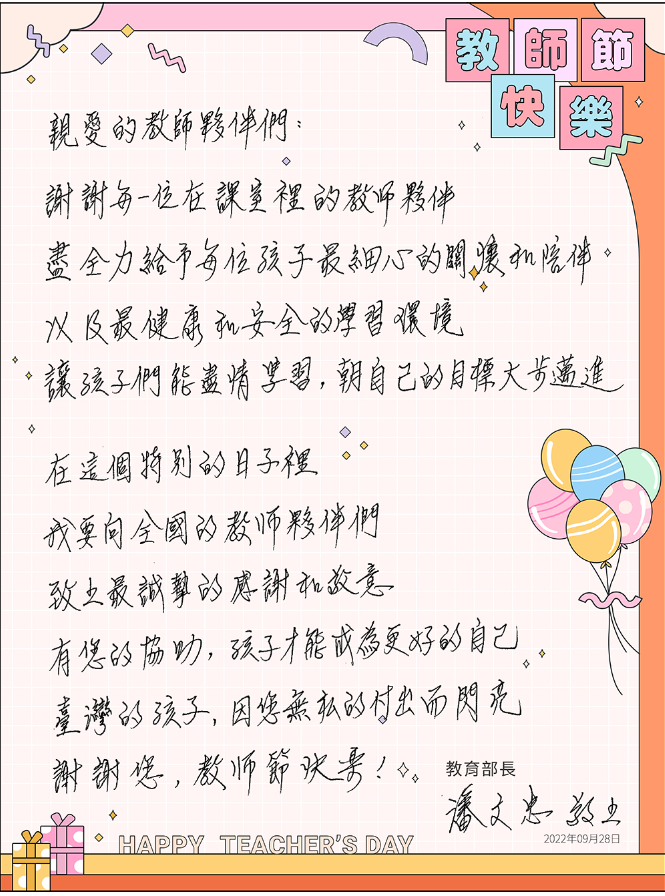 教師節
快樂
親愛的教師夥伴們：
謝謝每一位在課室裡的教师夥伴
盡全力給予每位孩子最細心的關懷和陪伴
以及最健康和安全的學習環境
讓孩子們能盡情學習，朝自己的目標大步邁進
在這個特别的日子裡
我要向全國的教师夥伴們
致上最誠摯的感謝和敬意
有您的協助，孩子才能成為更好的自己
臺灣的孩子，因您無私的付出而閃亮
謝謝您，教师節快樂！
教育部長
潘文忠 敬上
2022年09月28日
HAPPY TEACHER'S DAY